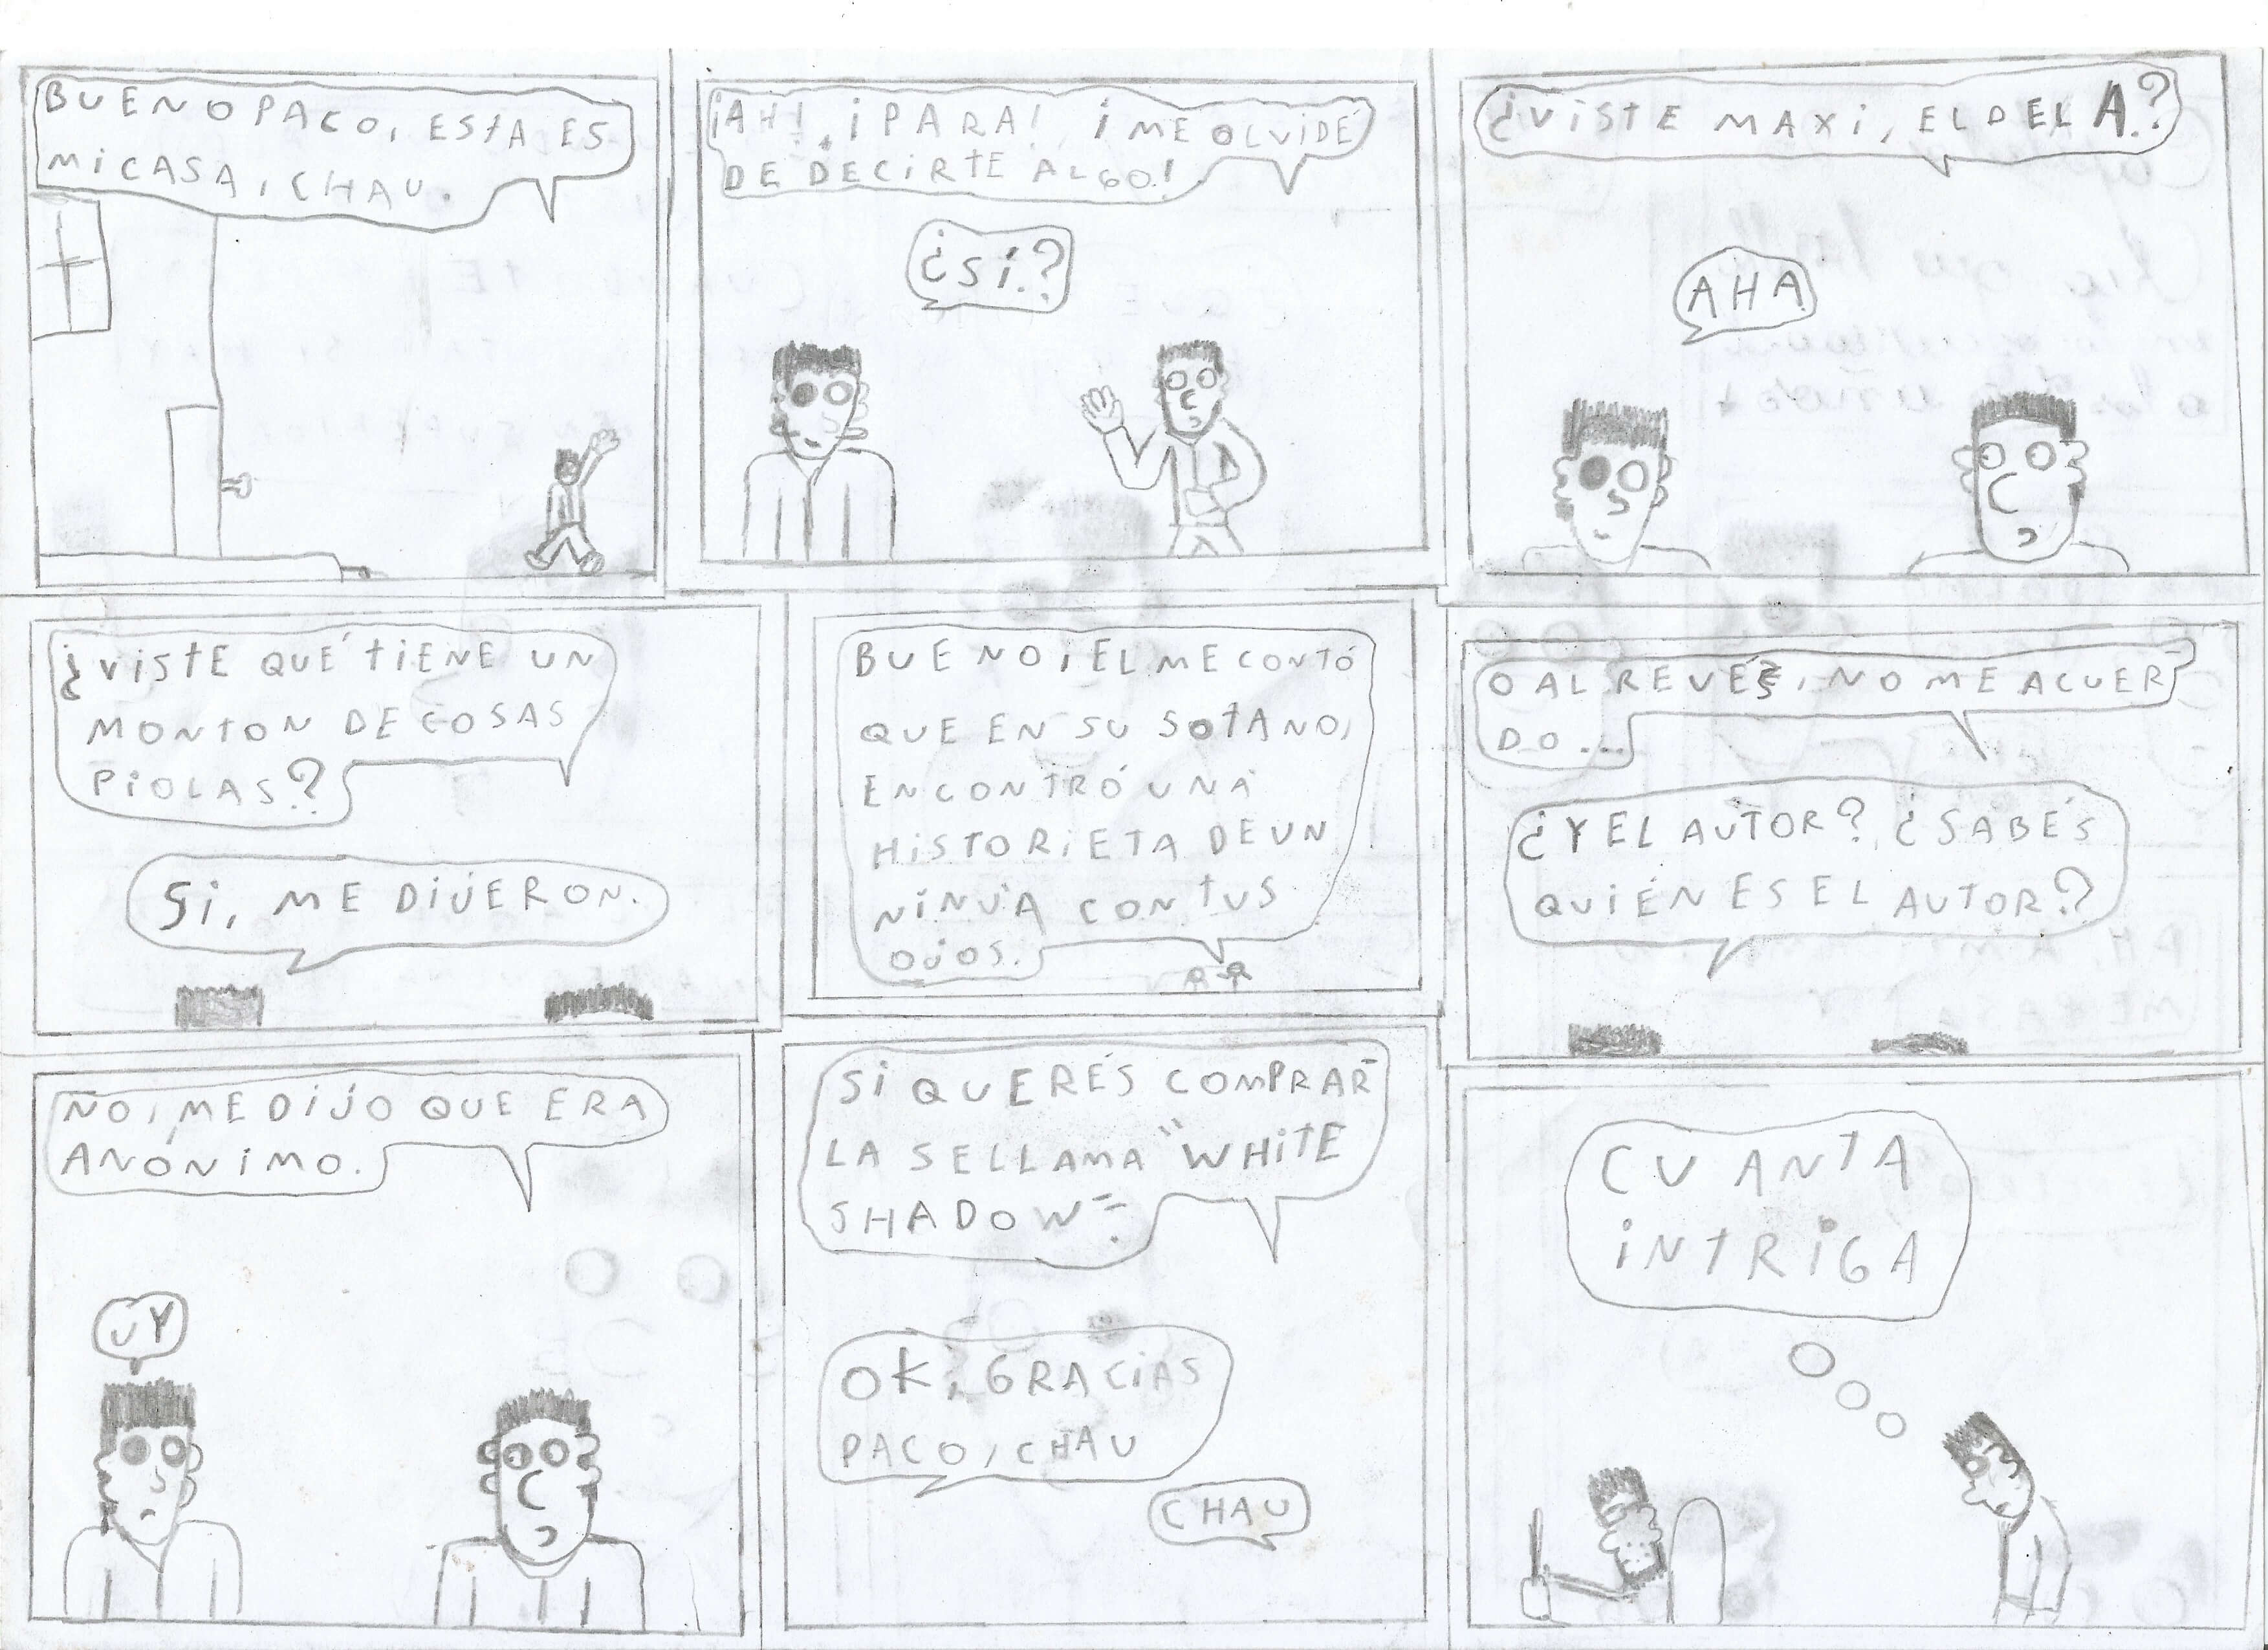 BUENO PACO, ESTA ES
MI CASA, CHAU.
¡AH! ¡PARA! ¡ME OLVIDÉ
DE DECIRTE ALGO!
¿SÍ?
¿VISTE MAXI, EL DEL A?
AHA
¿VISTE QUÉ TIENE UN
MONTON DE COSAS
PIOLAS?
SI, ME DIJERON.
BUENO, EL ME CONTÓ
QUE EN SU SOTANO,
ENCONTRÓ UNA
HISTORIETA DE UN
NINJA CON TUS
OJOS.
O AL REVÉS, NO ME ACUER
DO...
¿Y EL AUTOR? ¿SABÉS
QUIÉN ES EL AUTOR?
NO, ME DIJO QUE ERA
ANÓNIMO.
UY
SI QUERÉS COMPRAR
LA SE LLAMA "WHITE
SHADOW".
OK, GRACIAS
PACO, CHAU
CHAU
CUANTA
INTRIGA